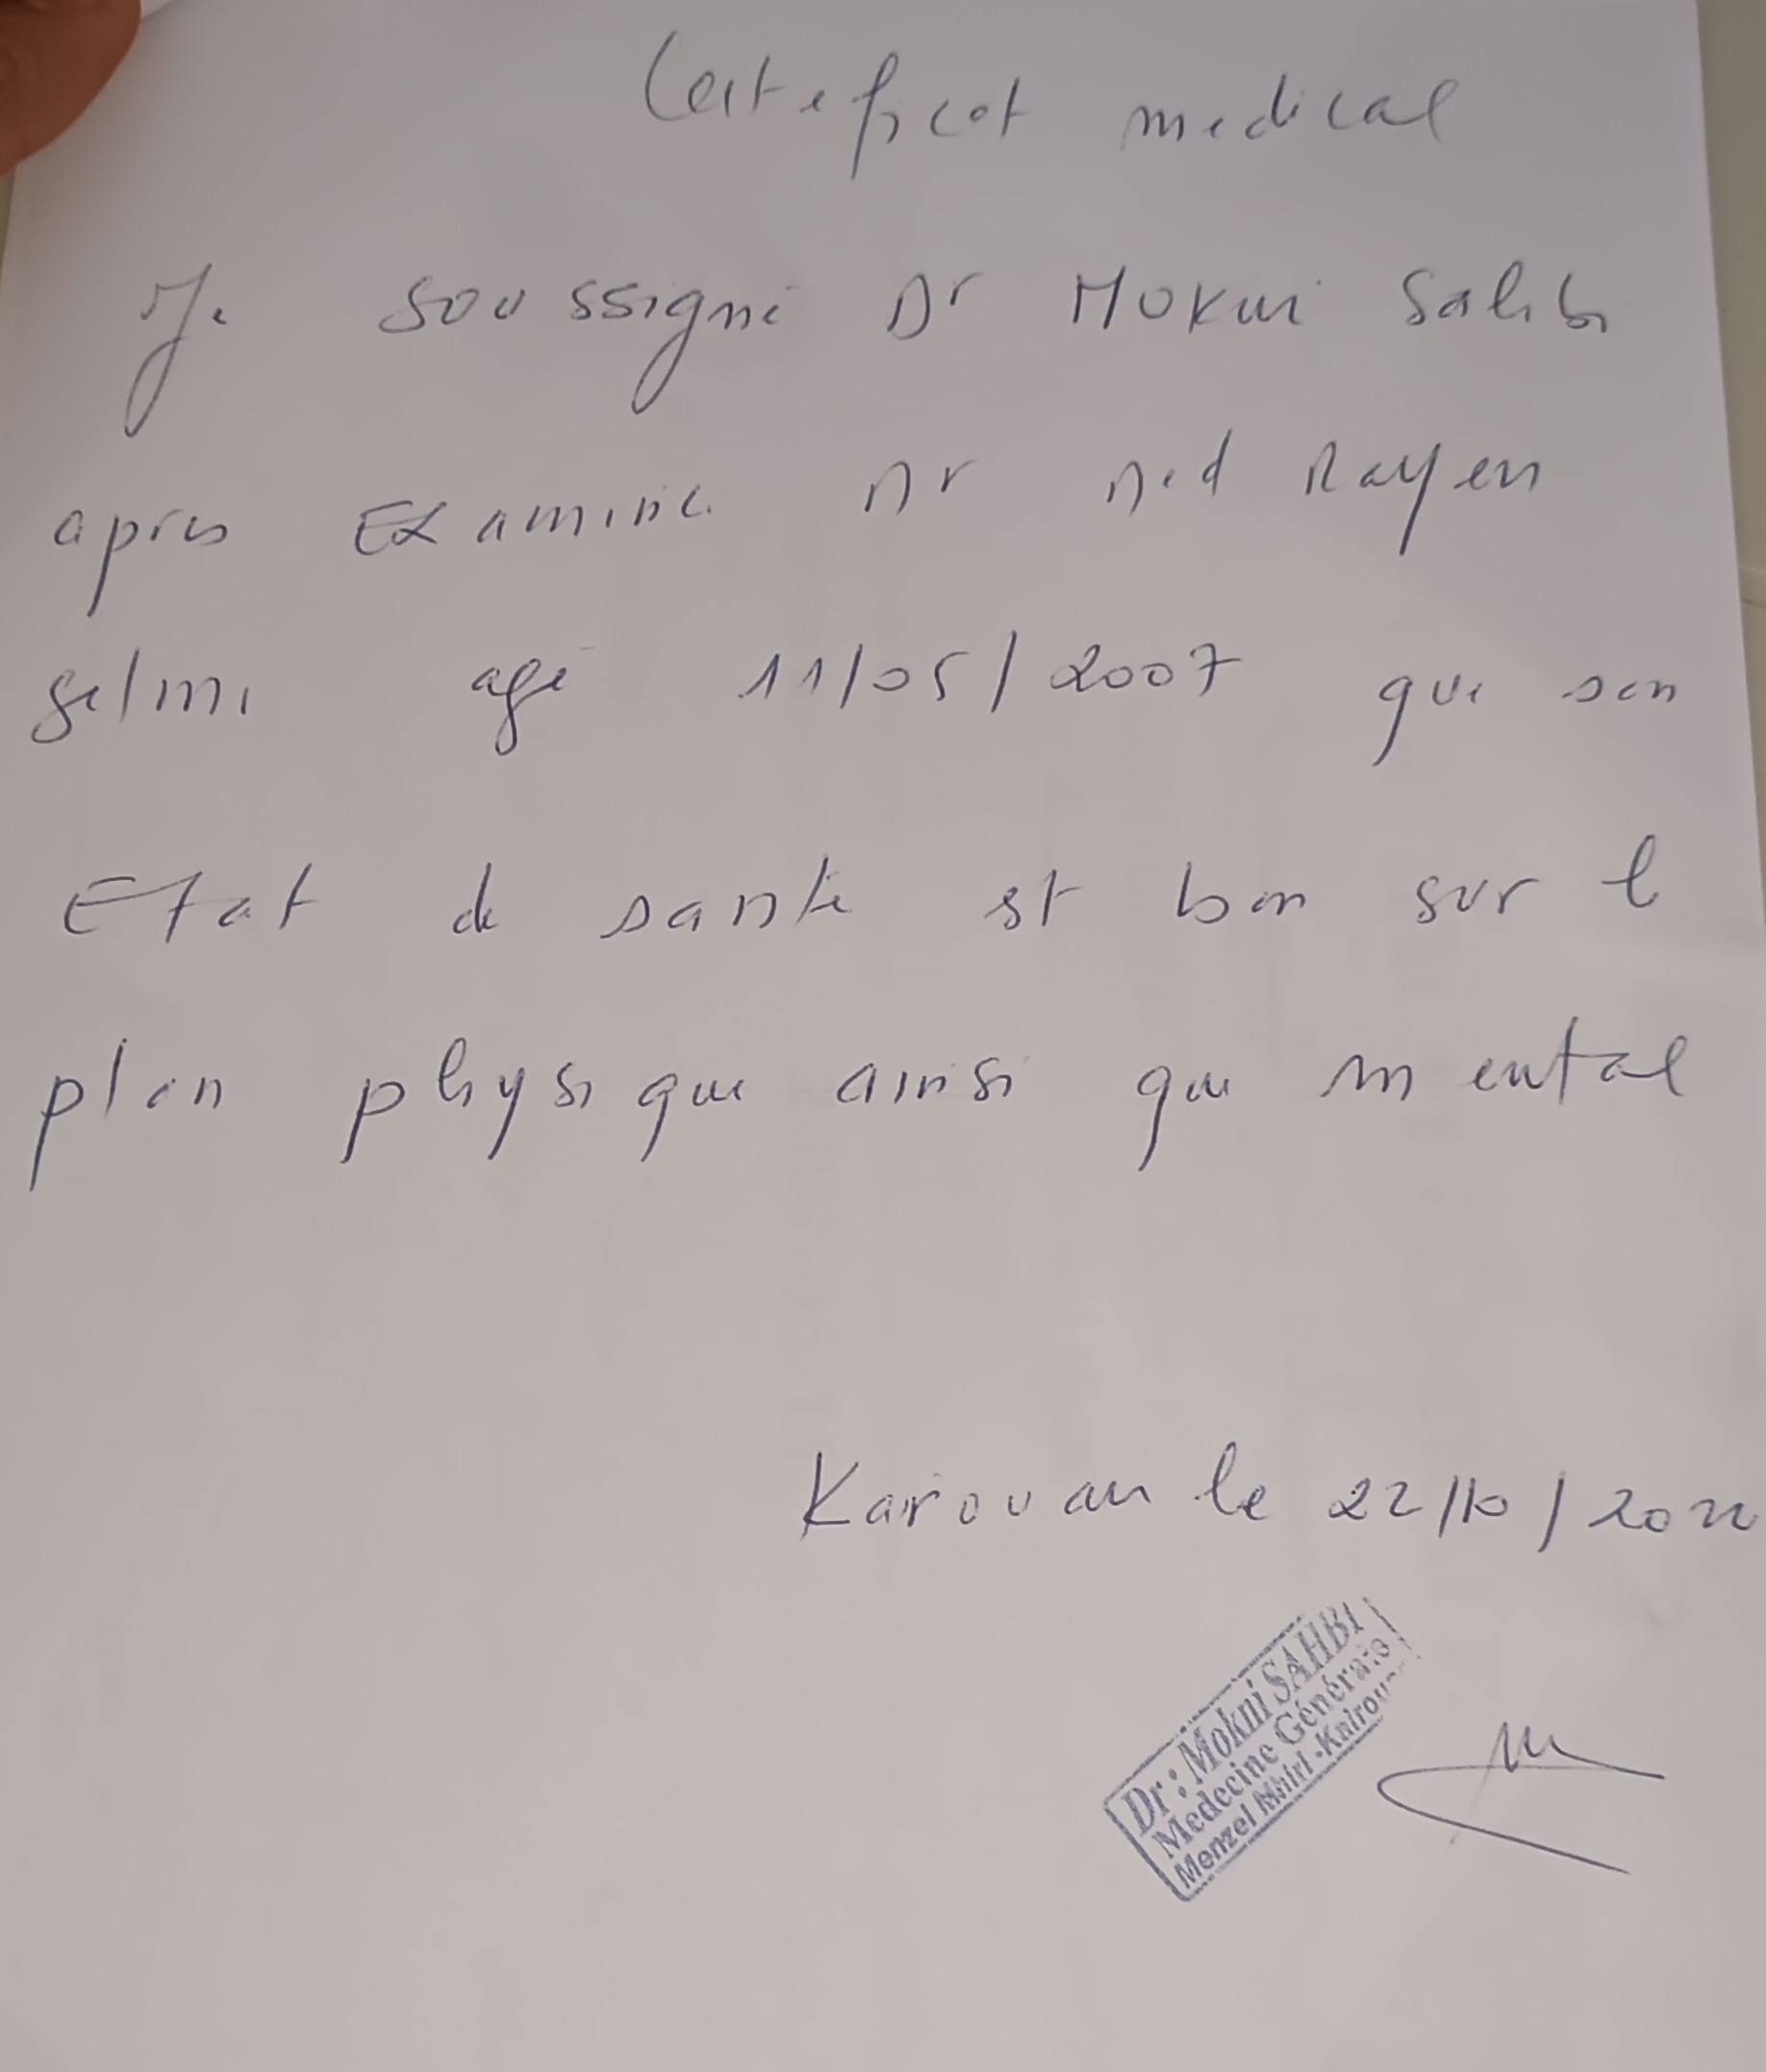 Certificat medical
Je soussigné Dr Mokni Sahbi
apres Examiné Mr Med Rayen
selmi agé 11/05/2007 que son
Etat de santé est bon sur le
plan physique ainsi que mental
Kairouan le 22/10/2022
Dr : Mokni SAHBI
Medecine Générale
Menzel Mhiri - Kairou